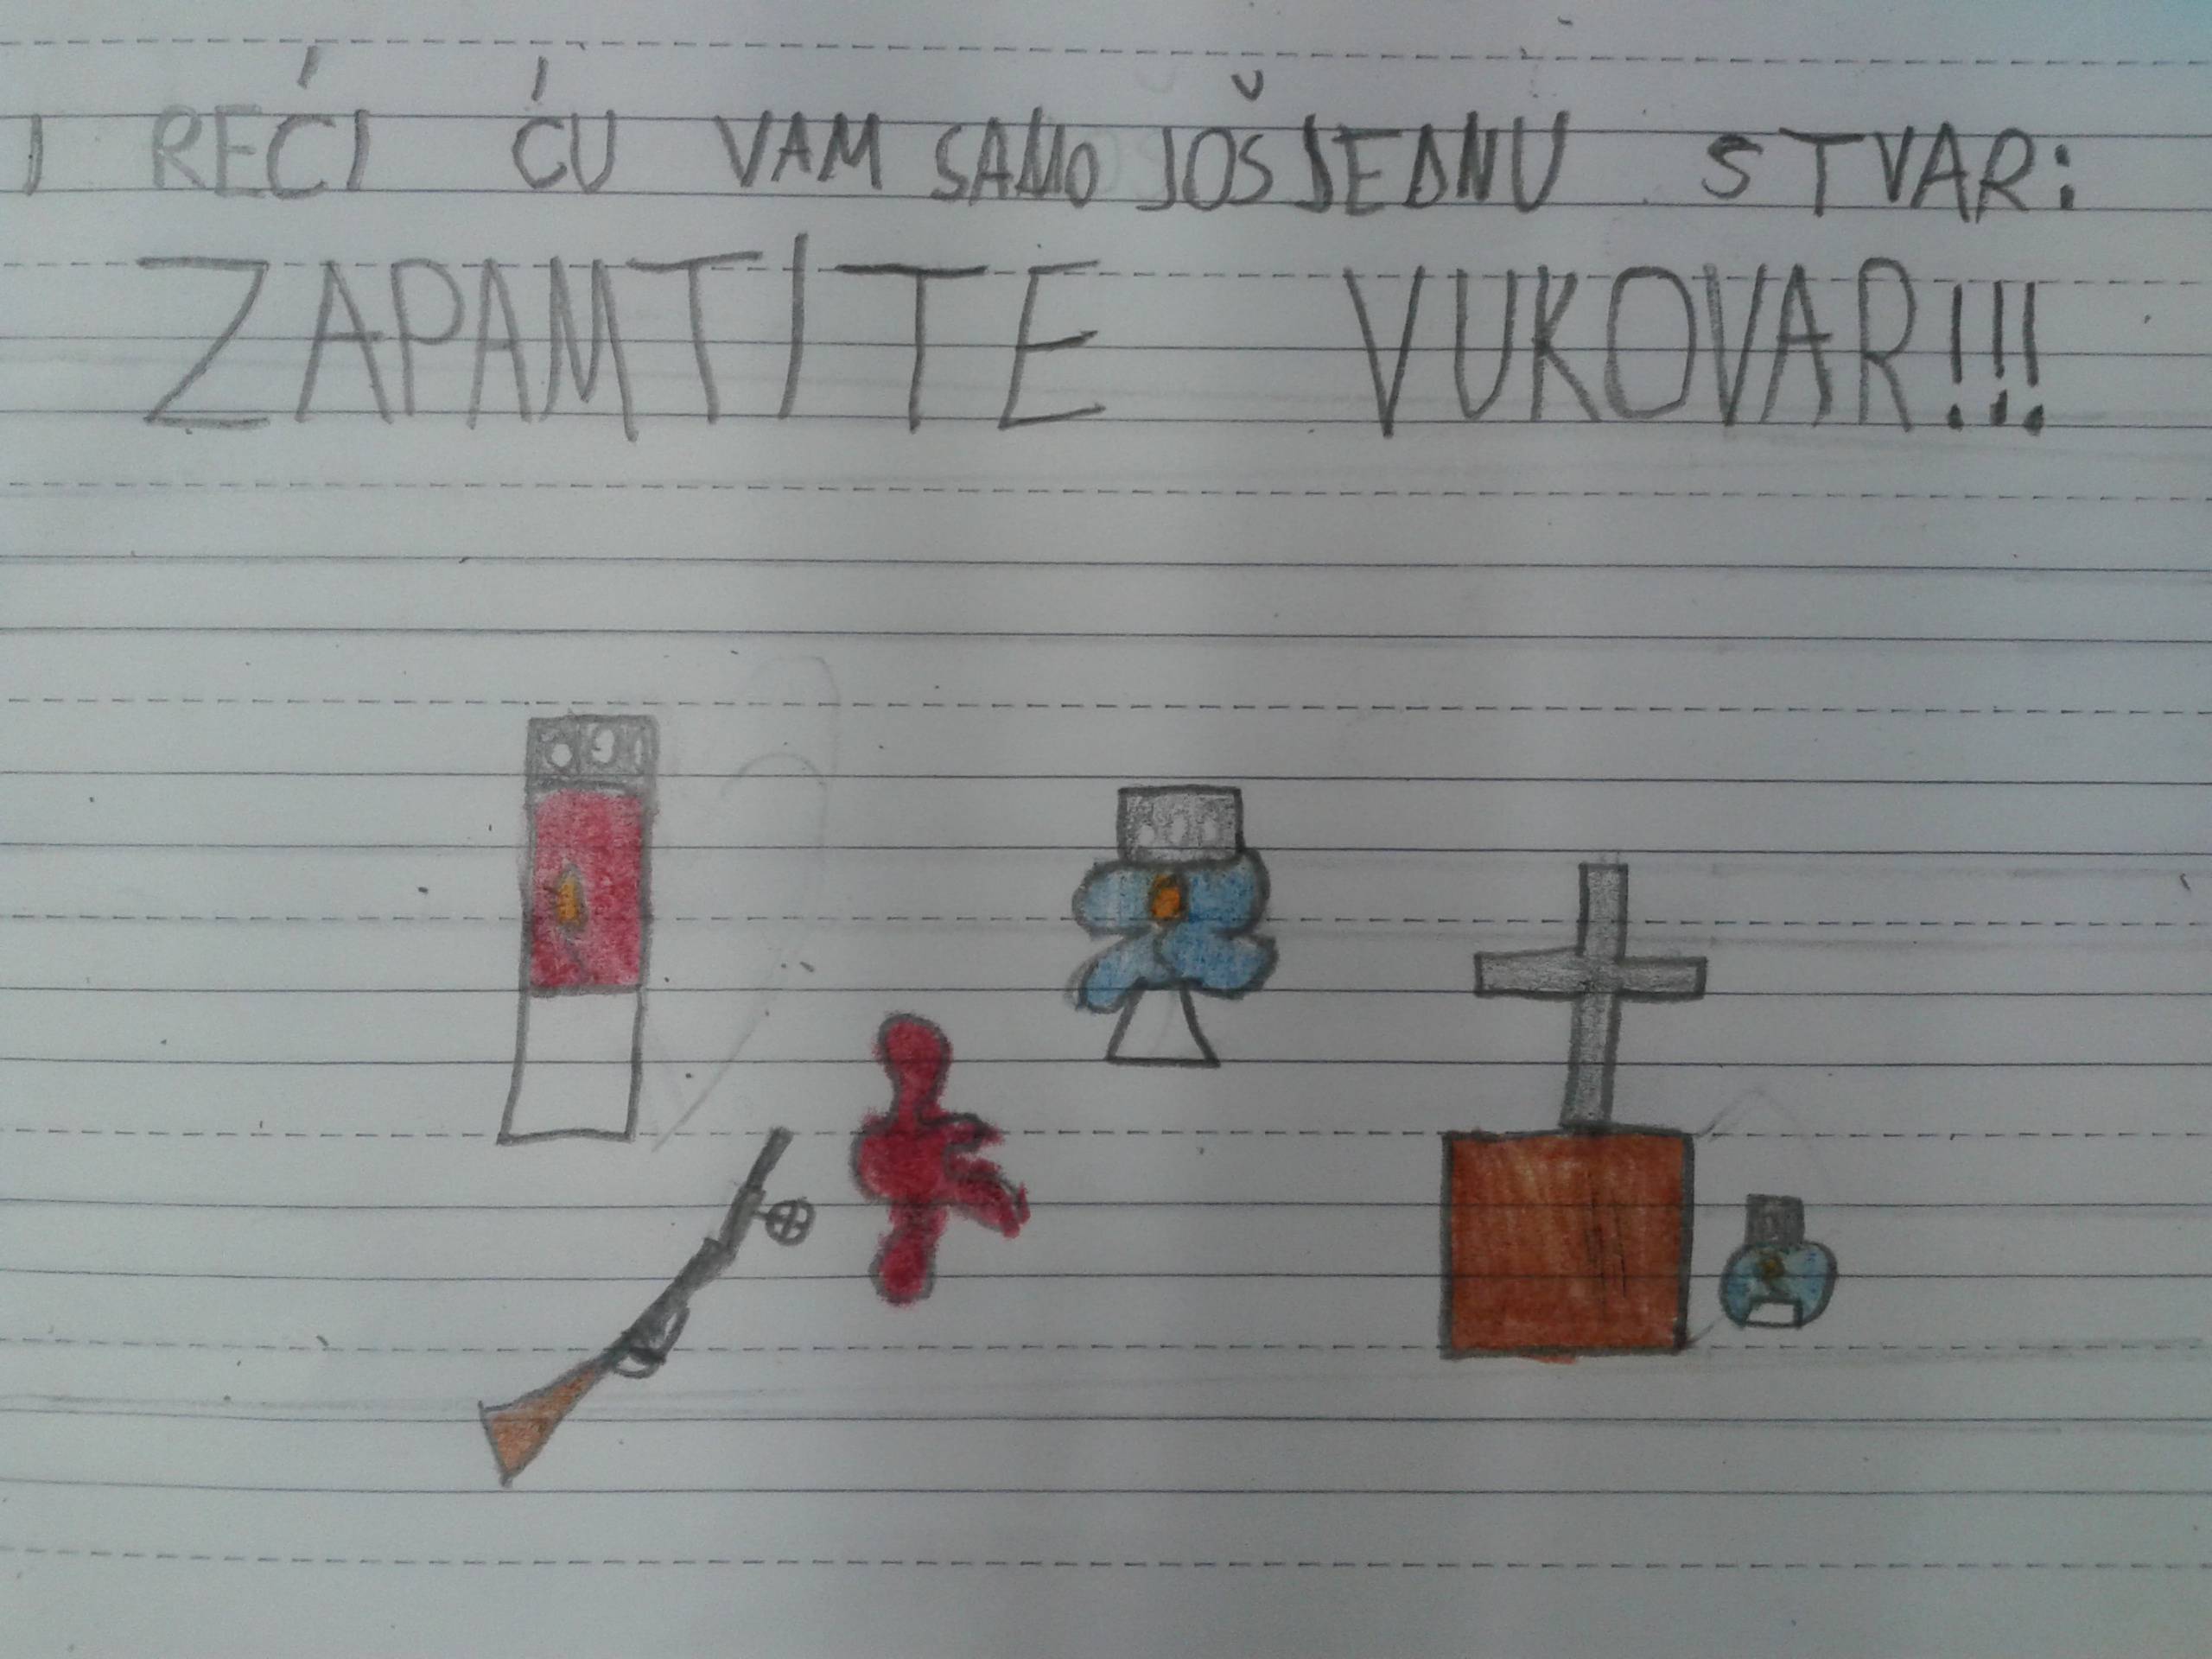 I REĆI ĆU VAM SAMO JOŠ JEDNU STVAR:
ZAPAMTITE VUKOVAR!!!